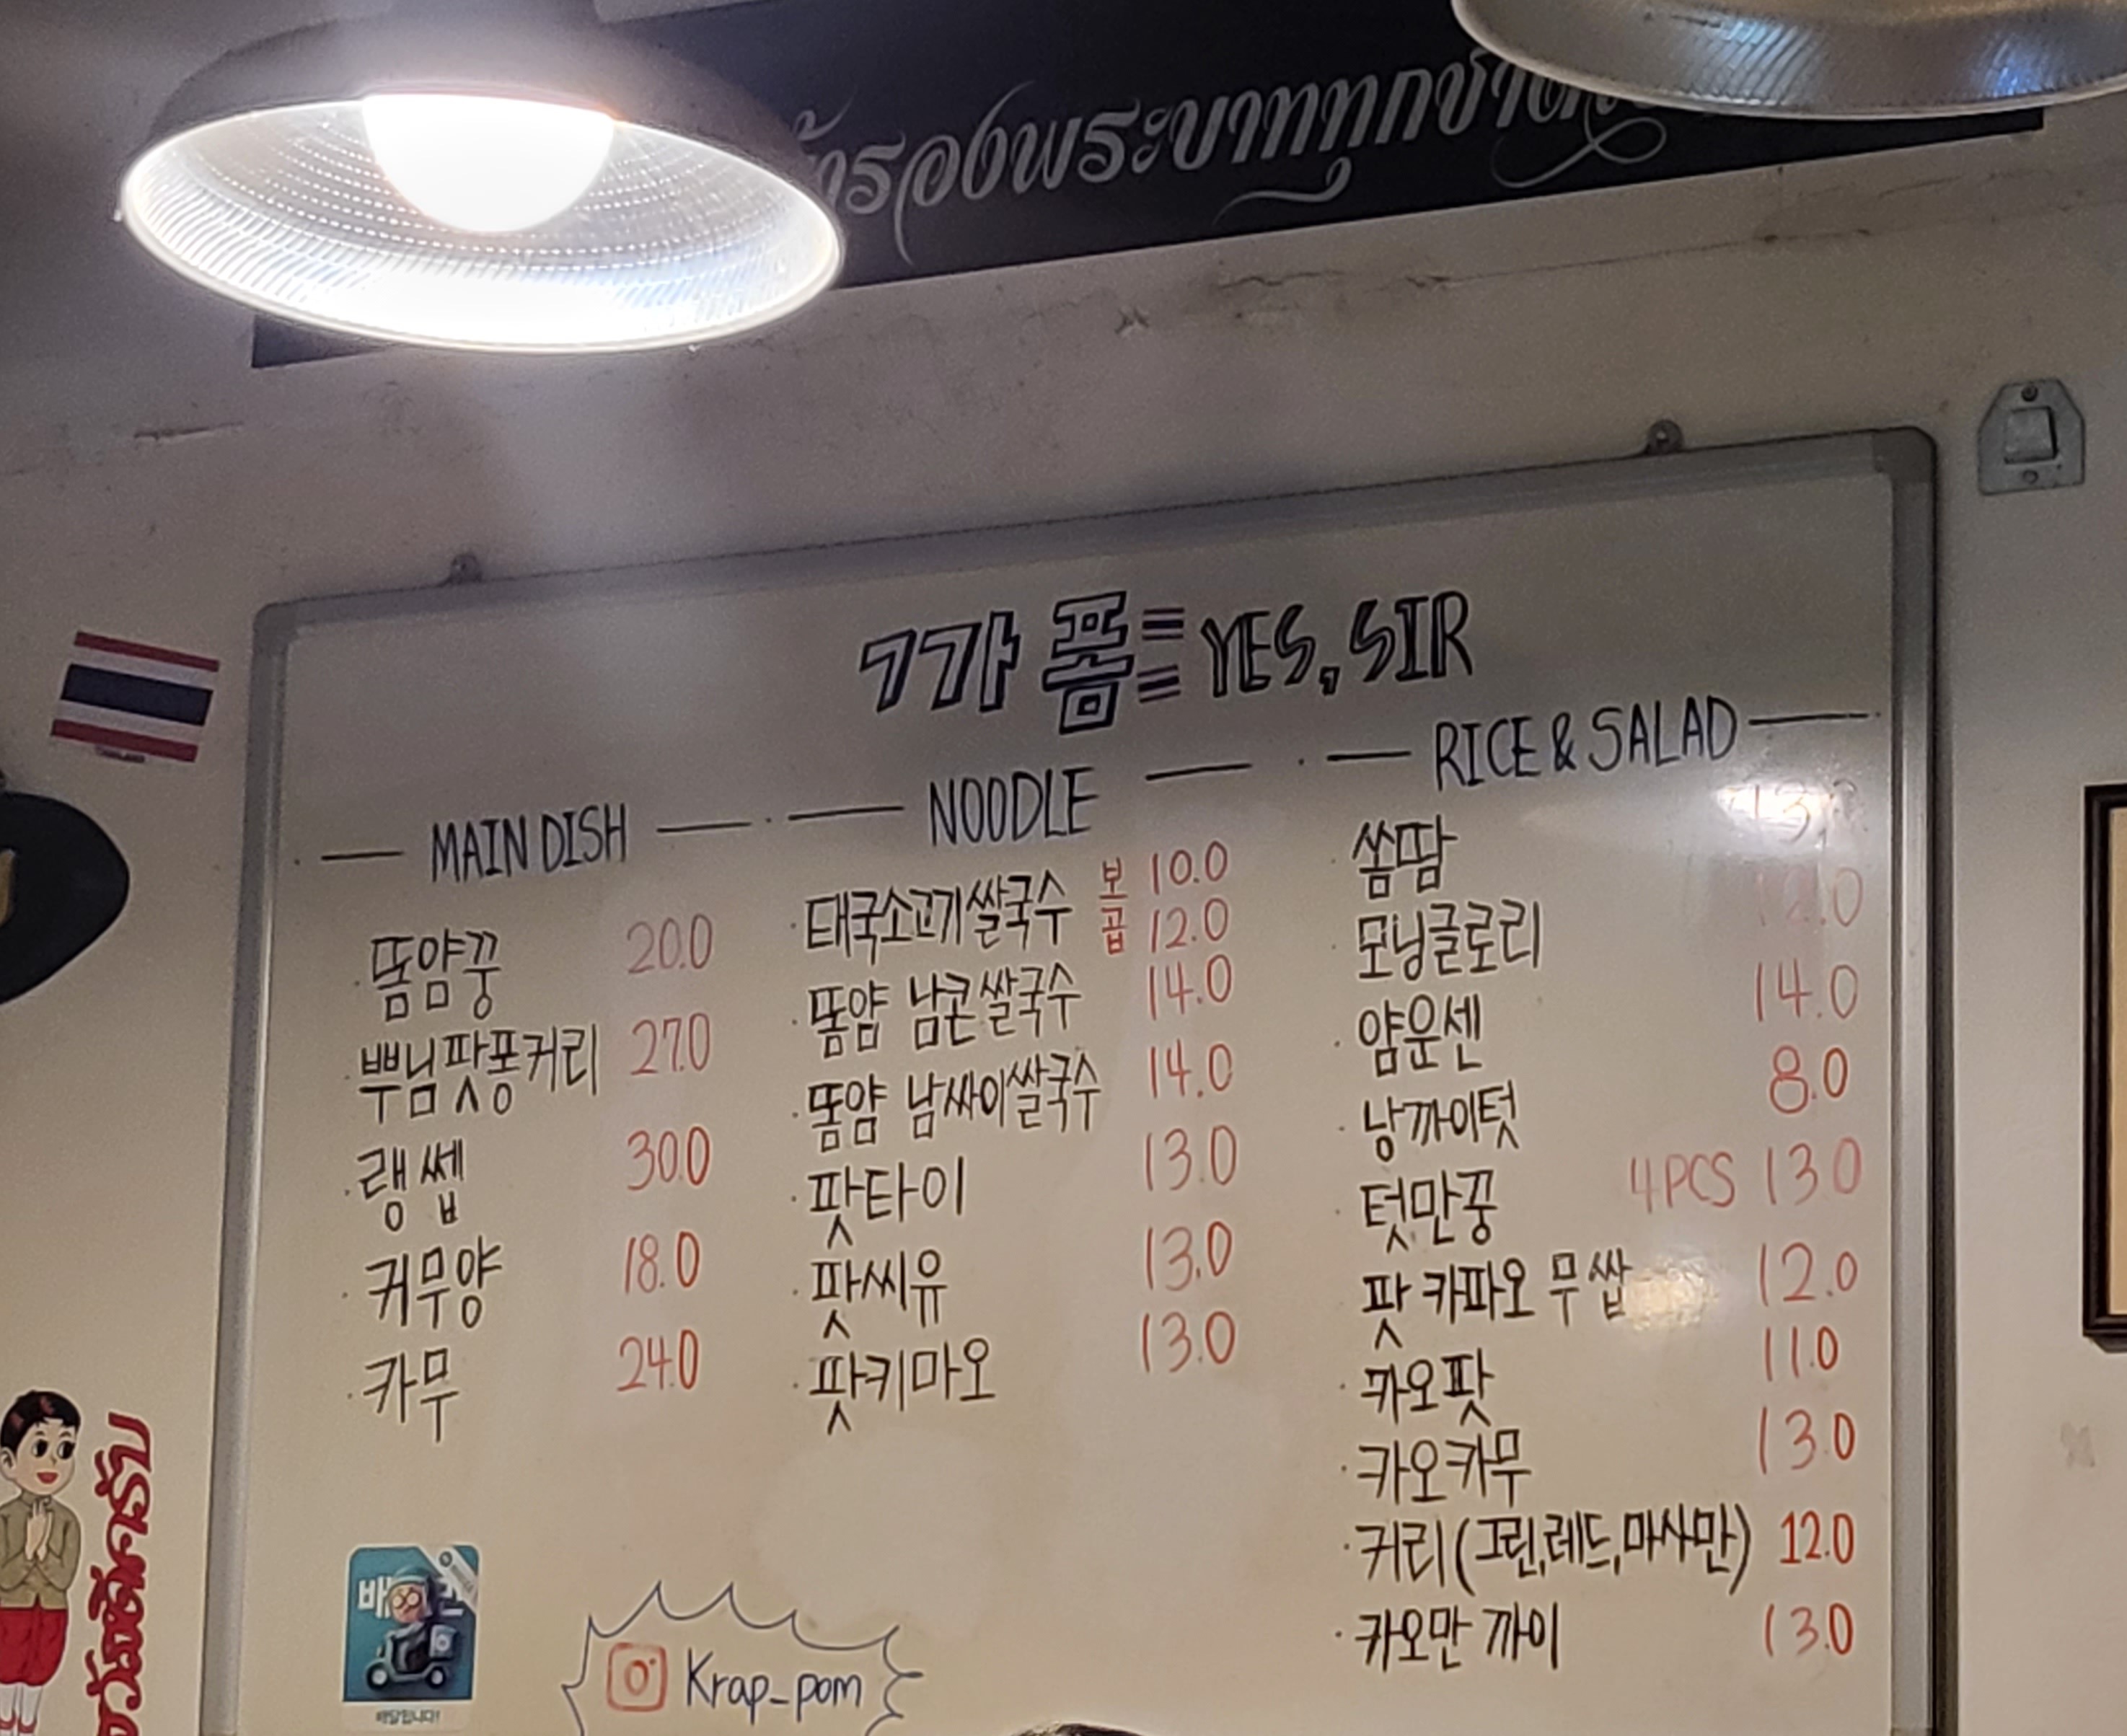 รองพระบาททุกชาติ
ㄱ가 폼 YES, SIR
MAIN DISH
똠얌꿍 20.0
뿌님팟퐁커리 27.0
랭쎕 30.0
커무양 18.0
카무 24.0
NOODLE
태국소고기쌀국수 보 10.0
곱 12.0
똠얌 남콘쌀국수 14.0
똠얌 남싸이쌀국수 14.0
팟타이 13.0
팟씨유 13.0
팟키마오 13.0
RICE & SALAD
쏨땀
모닝글로리
얌운센 14.0
낭까이텃 8.0
텃만꿍 4PCS 13.0
팟 카파오 무쌉 12.0
카오팟 11.0
카오카무 13.0
커리(그린,레드,마사만) 12.0
카오만 까이 13.0
Krap_pom
สวัสดีครับ
배달됩니다!